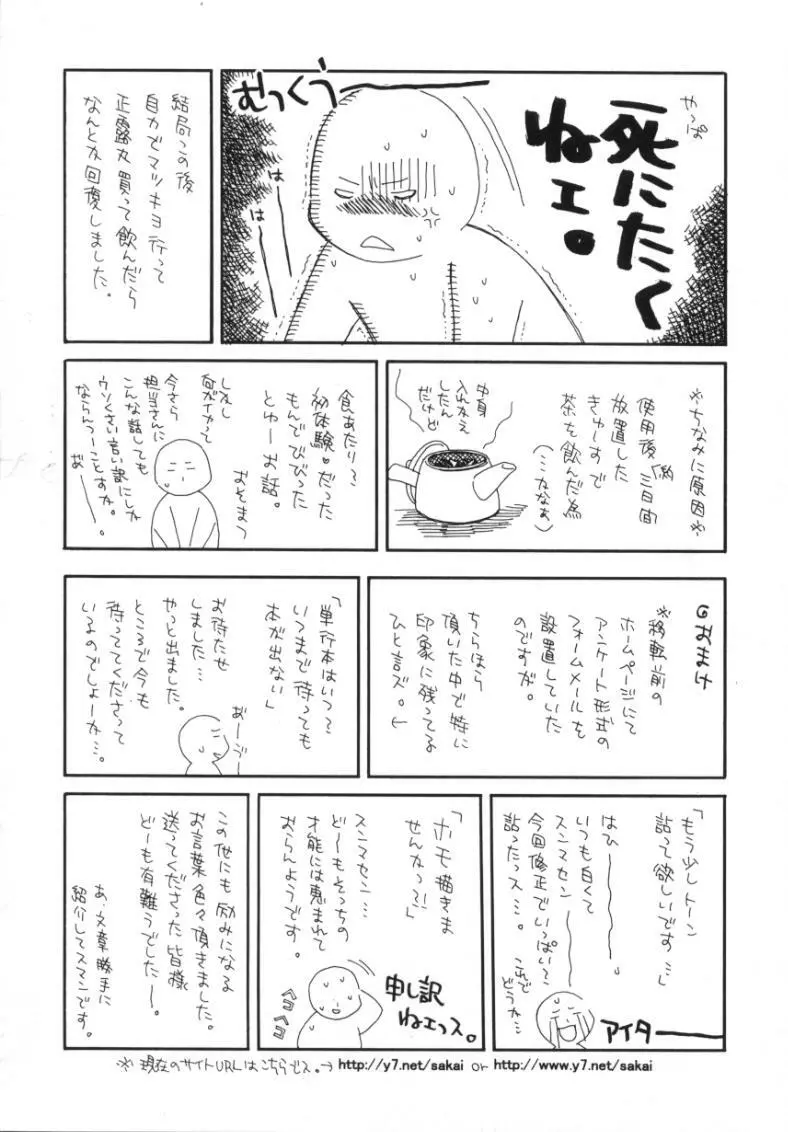 やっぱ
死にたく
ねエ。
むっくうーー
はー
はー
結局この後
自力でマツキヨ行って
正露丸買って飲んだら
なんとか回復しました。
※ちなみに原因※
使用後(約)三日間
放置した
きゅーすで
茶を飲んだ為
(ここなぁ)
中身
入れかえ
したん
だけど
食あたり〜
初体験♥だった
もんでびびった
とゆーお話。
おそまつ
しかし
何がイカって
今さら
担当さんに
こんな話しても
ウソくさい言い訳にしか
ならんっつーことすか。
おーー。
おまけ
※移転前の
ホームページにて
アンケート形式の
フォームメールを
設置していた
のですが。
ちらほら
頂いた中で特に
印象に残ってる
ひと言ズ。↓
「単行本はいつ〜
いつまで待っても
本が出ない」
お待たせ
しました…
やっと出ました。
ところで今も
待っててくださって
いるのでしょーか…。
おーうー
「もう少しトーン
貼って欲しいです…」
はひーーー。
いつも白くて
スンマセンーーー
今回修正でいっぱい〜
貼ったっス…。
これで
どうか…
アイターーー
「ホモ描きま
せんかっ?!」
スンマセン…
どーもそっちの
才能には恵まれて
おらんようです。
申し訳
ねエっス。
ペコペコ
この他にも励みになる
お言葉色々頂きました。
送ってくださった皆様
どーも有難うでしたー。
あ、文章勝手に
紹介してスマンです。
※現在のサイトURLはこちらでス。→ http://y7.net/sakai or http://www.y7.net/sakai